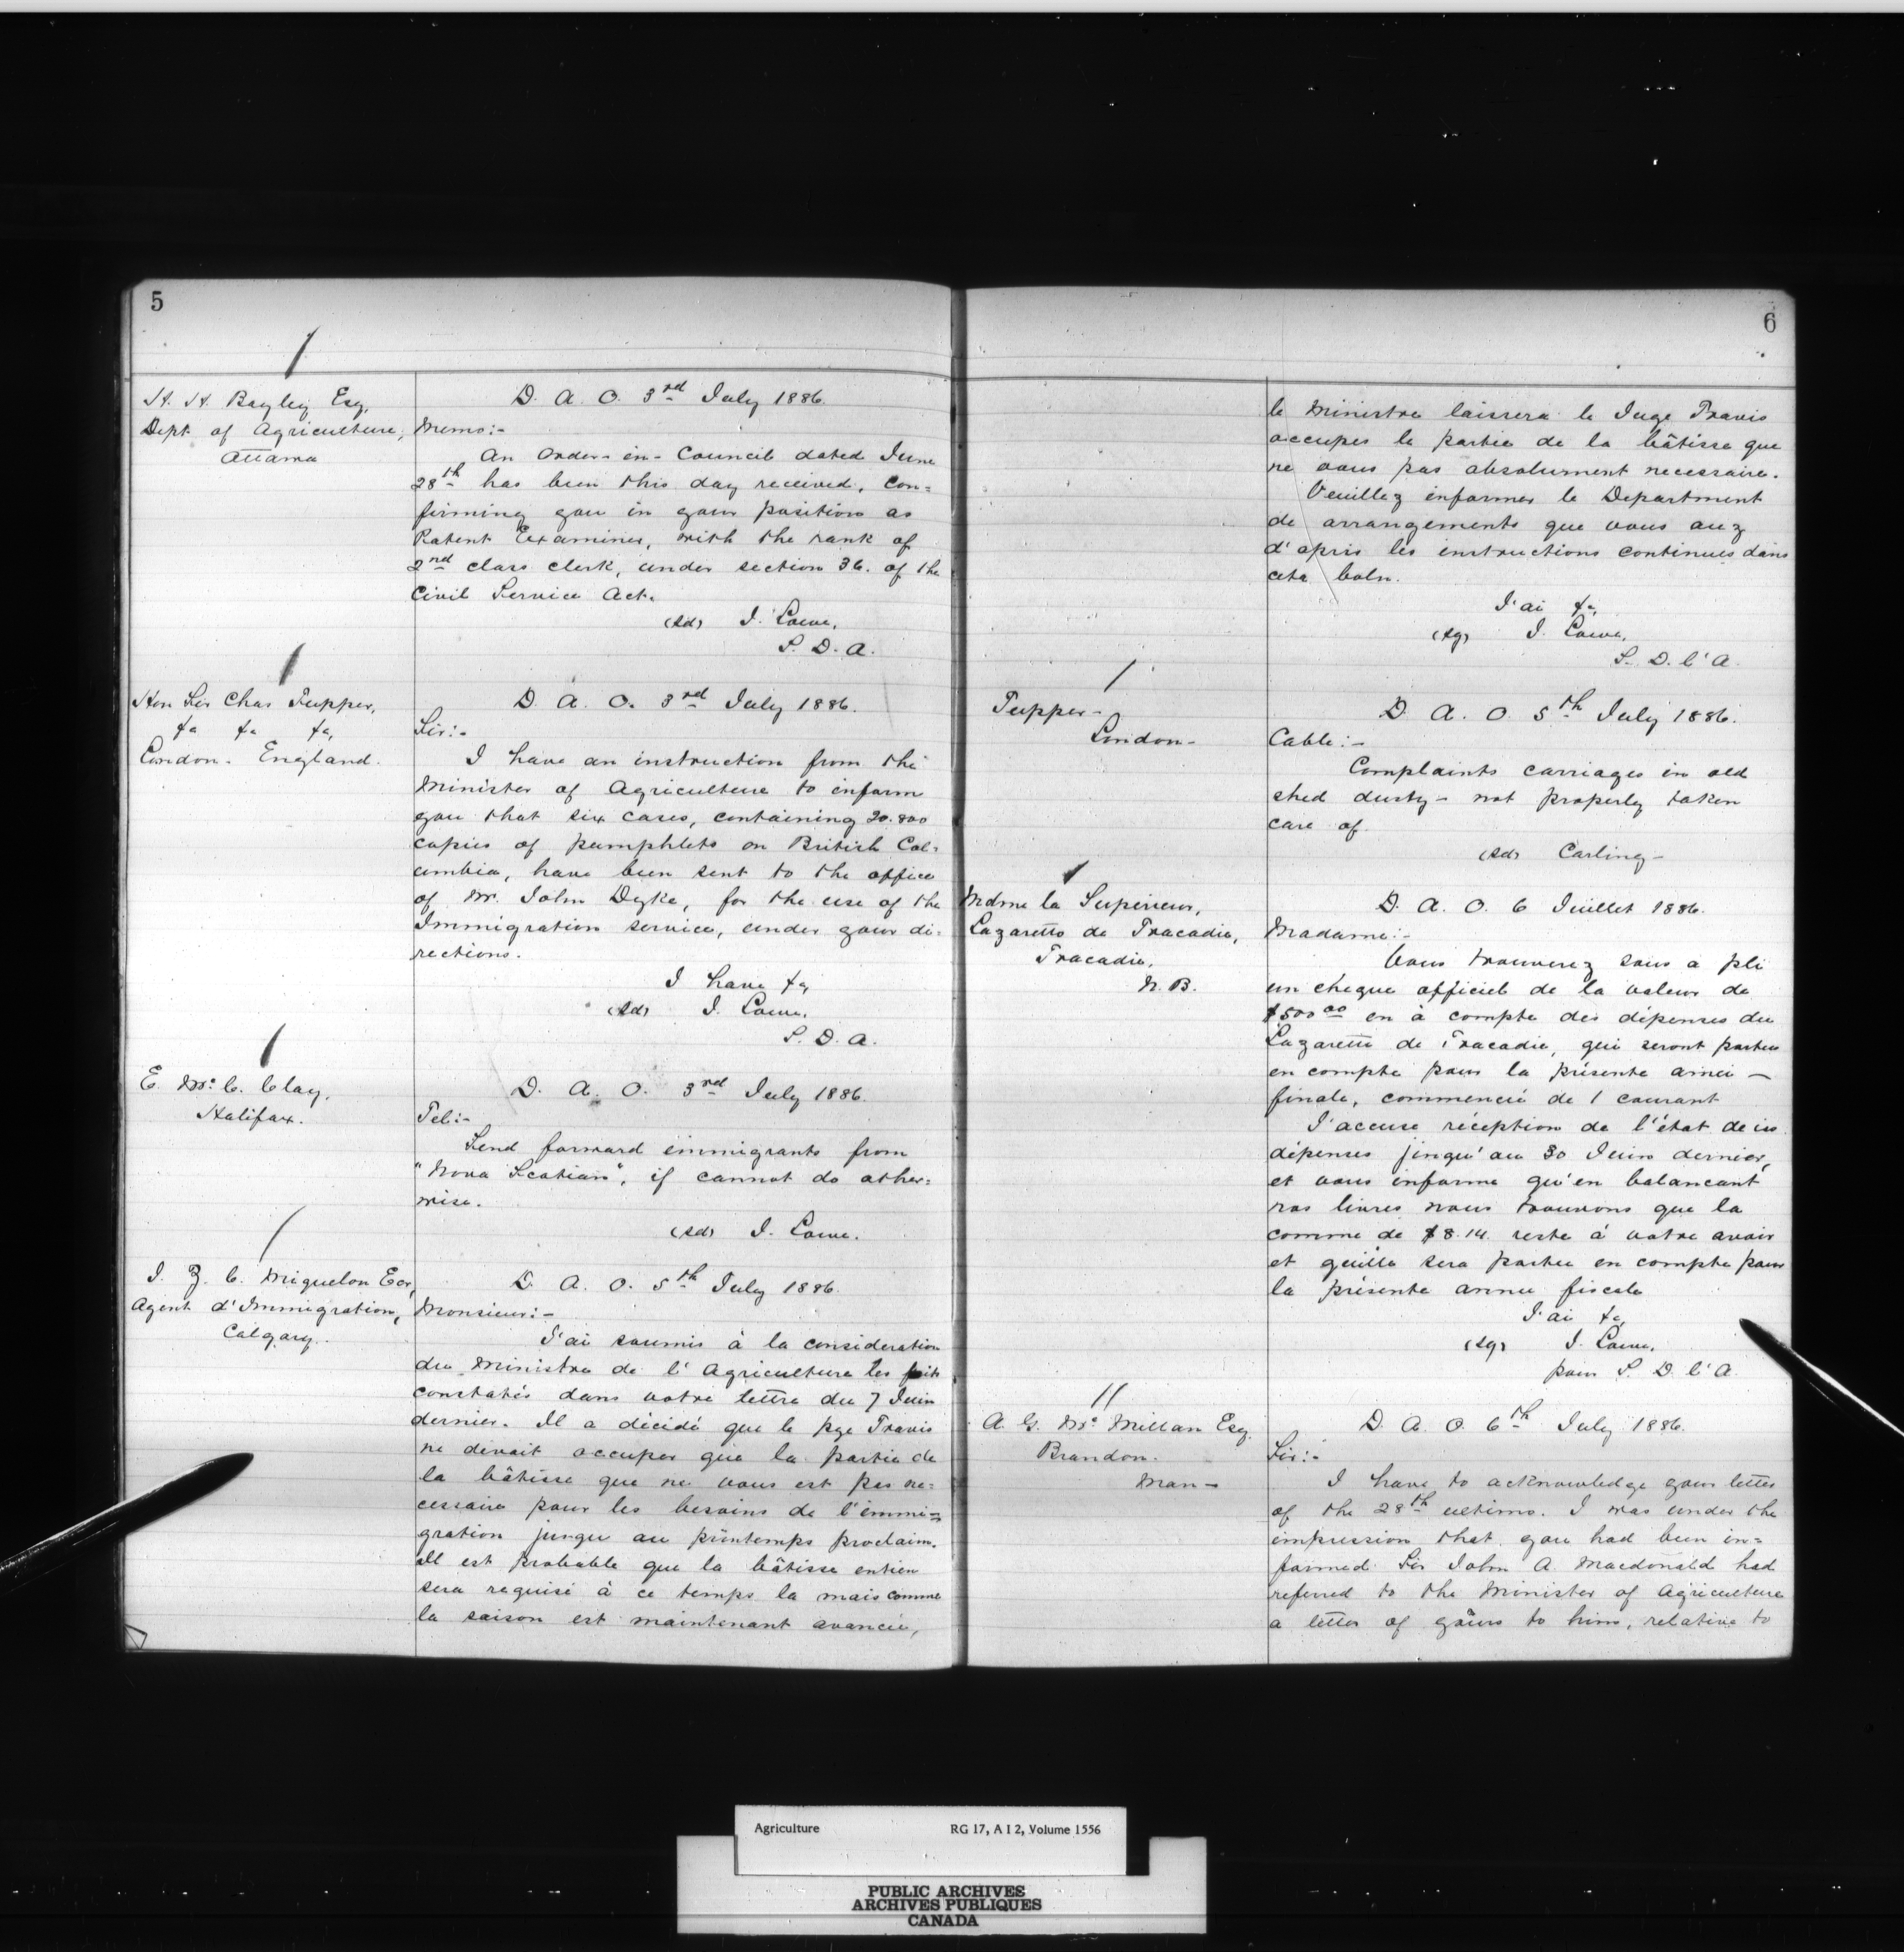 5
H. H. Bayley Esq,
Dept. of Agriculture,
Ottawa
D. A. O. 3rd July 1886.
Memo:-
An Order-in-Council dated June
28th has been this day received, con=
firming you in your position as
Patent Examiner, with the rank of
2nd class clerk, under section 36. of the
Civil Service Act.
(sd) J. Lowe,
S. D. A.
Hon Sir Chas Tupper,
&c &c &c,
London. England.
D. A. O. 3rd July 1886.
Sir:-
I have an instruction from the
Minister of Agriculture to inform
you that six cases, containing 20.800
copies of pamphlets on British Col=
umbia, have been sent to the office
of Mr. John Dyke, for the use of the
Immigration service, under your di=
rections.
I have &c,
(sd) J. Lowe,
S. D. A.
E. Mc. C. Clay,
Halifax.
D. A. O. 3rd July 1886.
Tel:-
Send forward immigrants from
"Nova Scotian", if cannot do other=
wise.
(sd) J. Lowe.
J. Z. C. Miquelon Ecr,
Agent d'Immigration,
Calgary.
D. A. O. 5th July 1886.
Monsieur:-
J'ai soumis à la consideration
du Ministre de l'Agriculture les faits
constatés dans votre lettre du 7 Juin
dernier. Il a décidé que le Travis
ne devait occuper que la partie de
la bâtisse que ne vous est pas ne=
cessaire pour les besoins de l'immi=
gration jusqu au printemps proclaim.
Il est probable que la bâtisse entien
sera requise à ce temps la mais comme
la saison est maintenant avancée,
6
le Ministre laissera le Juge Travis
occuper le partie de la bâtisse que
ne vous pas absolument necessaire.
Veuillez informer le Department
de arrangements que vous auz
d'apris les instructions continues dans
cete
J'ai &c,
(sg) J. Lowe,
S. D. l'A.
Tupper-
London-
D. A. O. 5th July 1886.
Cable:-
Complaints carriages in old
shed dusty- not properly taken
care of.
(sd) Carling-
Mdme la Superieur,
Lazaretto de Tracadie,
Tracadie,
N. B.
D. A. O. 6 Juillet 1886.
Madame:-
Vous trouverez sous a pli
un cheque officiel de la valeur de
$500 00 en à compte des dépenses du
Lazaretto de Tracadie, qui seront porteu
en compte pour la présente année -
finale, commencié de 1 courant
J'accuse réception de l'état de
dépenses jusqu'au 30 Juin dernier,
et vous informe qu'en balancant
vos livres nous trouvons que la
comme de $8.14. reste à votre avoir
et quille sera portee en compte pour
la présente annee fiscale
J'ai &c
(sg) J. Lowe,
pour S. D. l'A.
A. G. Mc. Millan Esq.
Brandon.
Man-
D. A. O. 6th July 1886.
Sir:-
I have to acknowledge your letter
of the 28th ultimo. I was under the
impression that you had been in=
formed Sir John A. Macdonald had
referred to the Minister of Agriculture
a letter of yours to him, relative to
Agriculture RG 17, A I 2, Volume 1556
PUBLIC ARCHIVES
ARCHIVES PUBLIQUES
CANADA